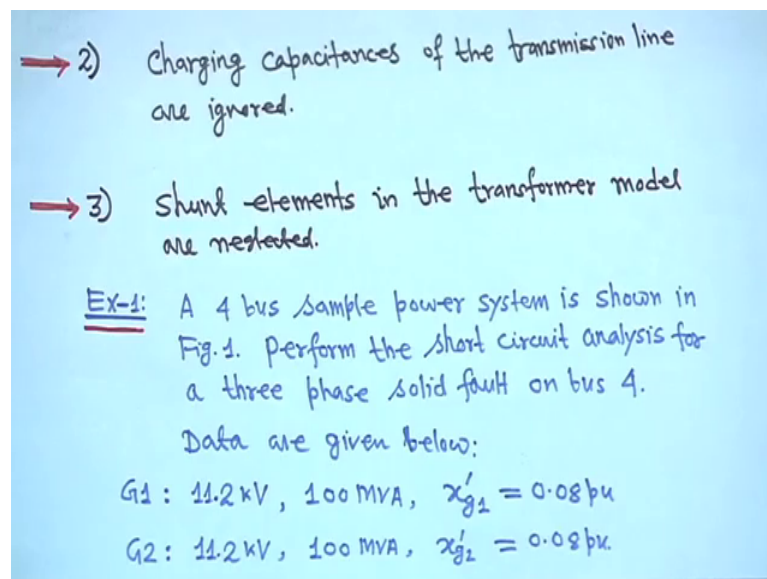 2) Charging capacitances of the transmission line
are ignored.
3) Shunt elements in the transformer model
are neglected.
Ex-1: A 4 bus sample power system is shown in
Fig.1. Perform the short circuit analysis for
a three phase solid fault on bus 4.
Data are given below:
G1 : 11.2 kV, 100 MVA, x'g1 = 0.08 pu
G2 : 11.2 kV, 100 MVA, x'g2 = 0.08 pu.